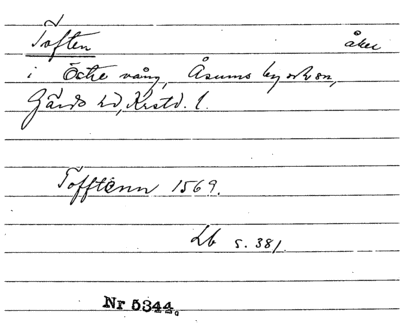 Toften åker
i Östre vång, Åsums by o. sn,
Gärds hd, Krstd. l.
Tofftenn 1569.
Lb s. 381
Nr 5344.